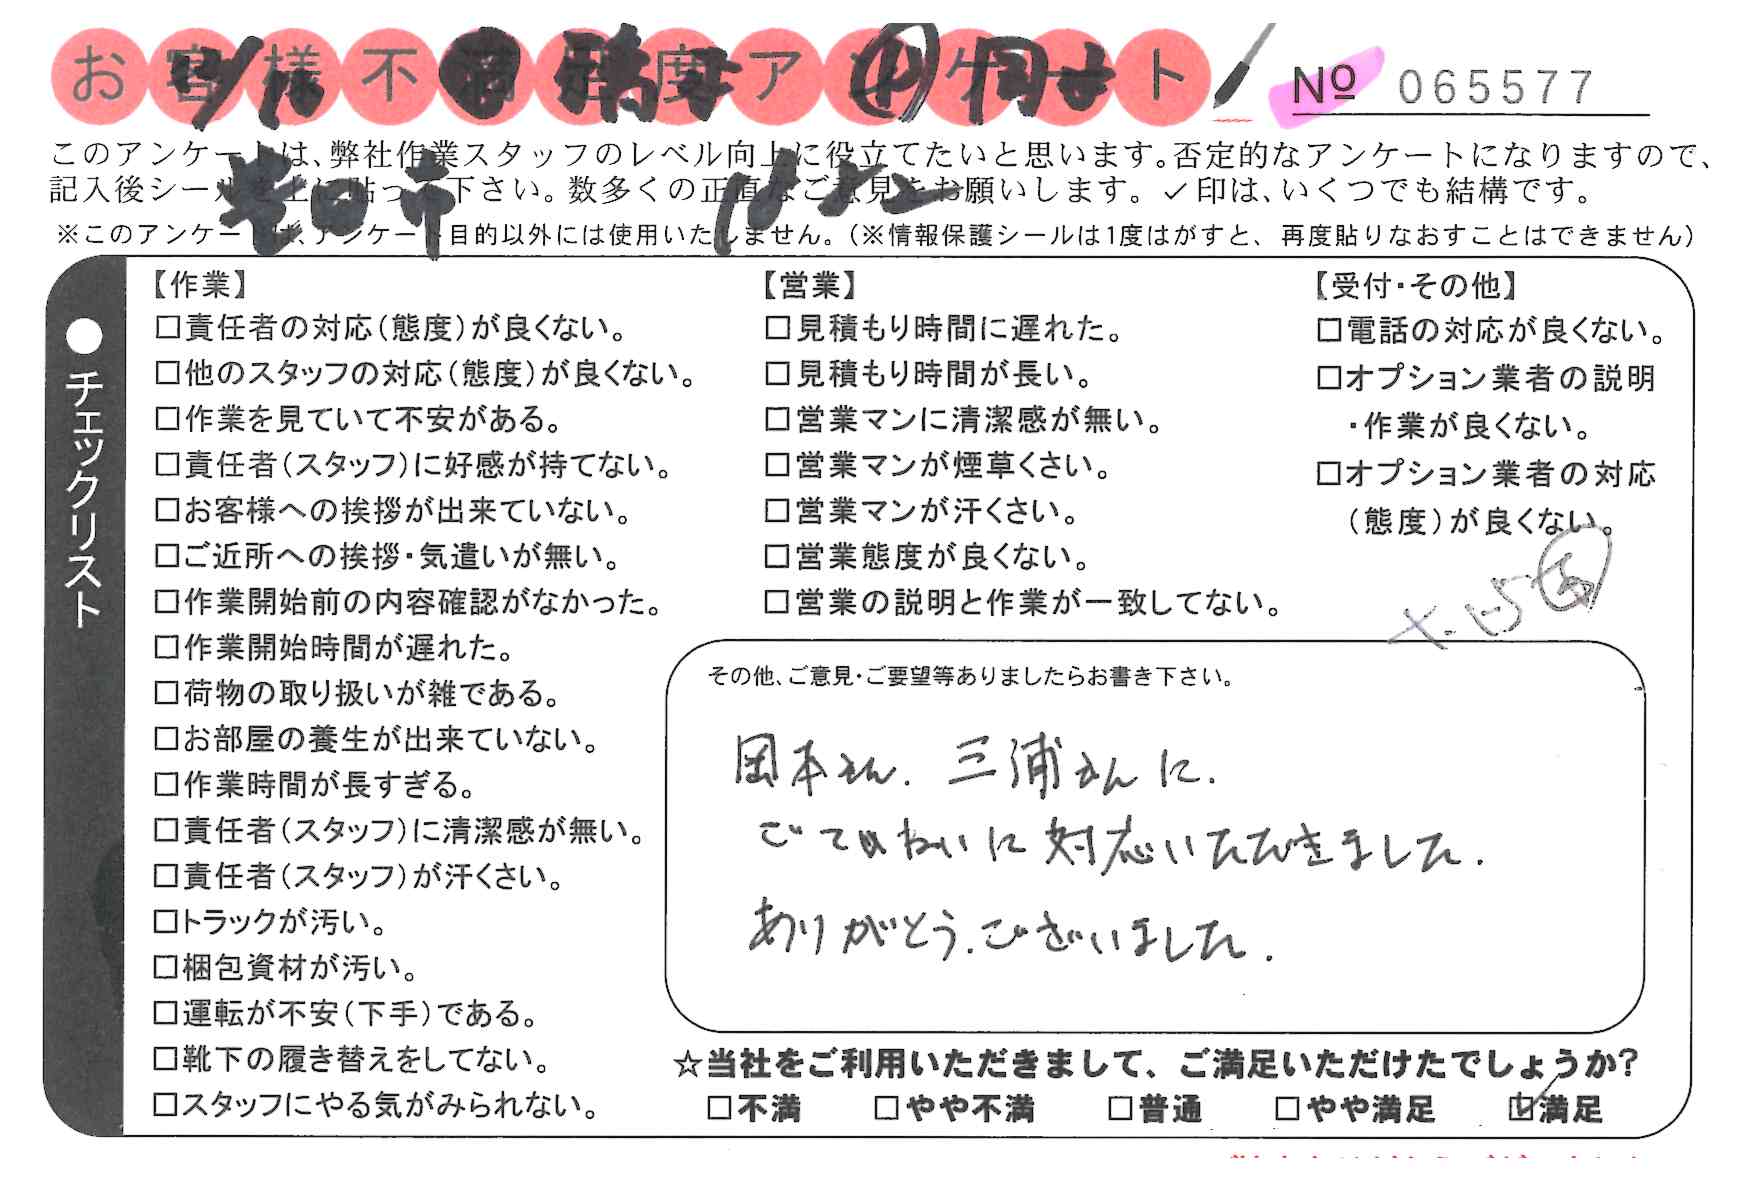 お客様不満足度アンケート
№ 065577
このアンケートは、弊社作業スタッフのレベル向上に役立てたいと思います。否定的なアンケートになりますので、
記入後シールを上に貼って下さい。数多くの正直なご意見をお願いします。✓印は、いくつでも結構です。
※このアンケートは、アンケート目的以外には使用いたしません。（※情報保護シールは1度はがすと、再度貼りなおすことはできません）
●チェックリスト
【作業】
□責任者の対応（態度）が良くない。
□他のスタッフの対応（態度）が良くない。
□作業を見ていて不安がある。
□責任者（スタッフ）に好感が持てない。
□お客様への挨拶が出来ていない。
□ご近所への挨拶・気遣いが無い。
□作業開始前の内容確認がなかった。
□作業開始時間が遅れた。
□荷物の取り扱いが雑である。
□お部屋の養生が出来ていない。
□作業時間が長すぎる。
□責任者（スタッフ）に清潔感が無い。
□責任者（スタッフ）が汗くさい。
□トラックが汚い。
□梱包資材が汚い。
□運転が不安（下手）である。
□靴下の履き替えをしてない。
□スタッフにやる気がみられない。
【営業】
□見積もり時間に遅れた。
□見積もり時間が長い。
□営業マンに清潔感が無い。
□営業マンが煙草くさい。
□営業マンが汗くさい。
□営業態度が良くない。
□営業の説明と作業が一致してない。
【受付・その他】
□電話の対応が良くない。
□オプション業者の説明
・作業が良くない。
□オプション業者の対応
（態度）が良くない。
その他、ご意見・ご要望等ありましたらお書き下さい。
岡本さん、三浦さんに、
ごていねいに対応いただきました。
ありがとうございました。
☆当社をご利用いただきまして、ご満足いただけたでしょうか?
□不満 □やや不満 □普通 □やや満足 ☑満足